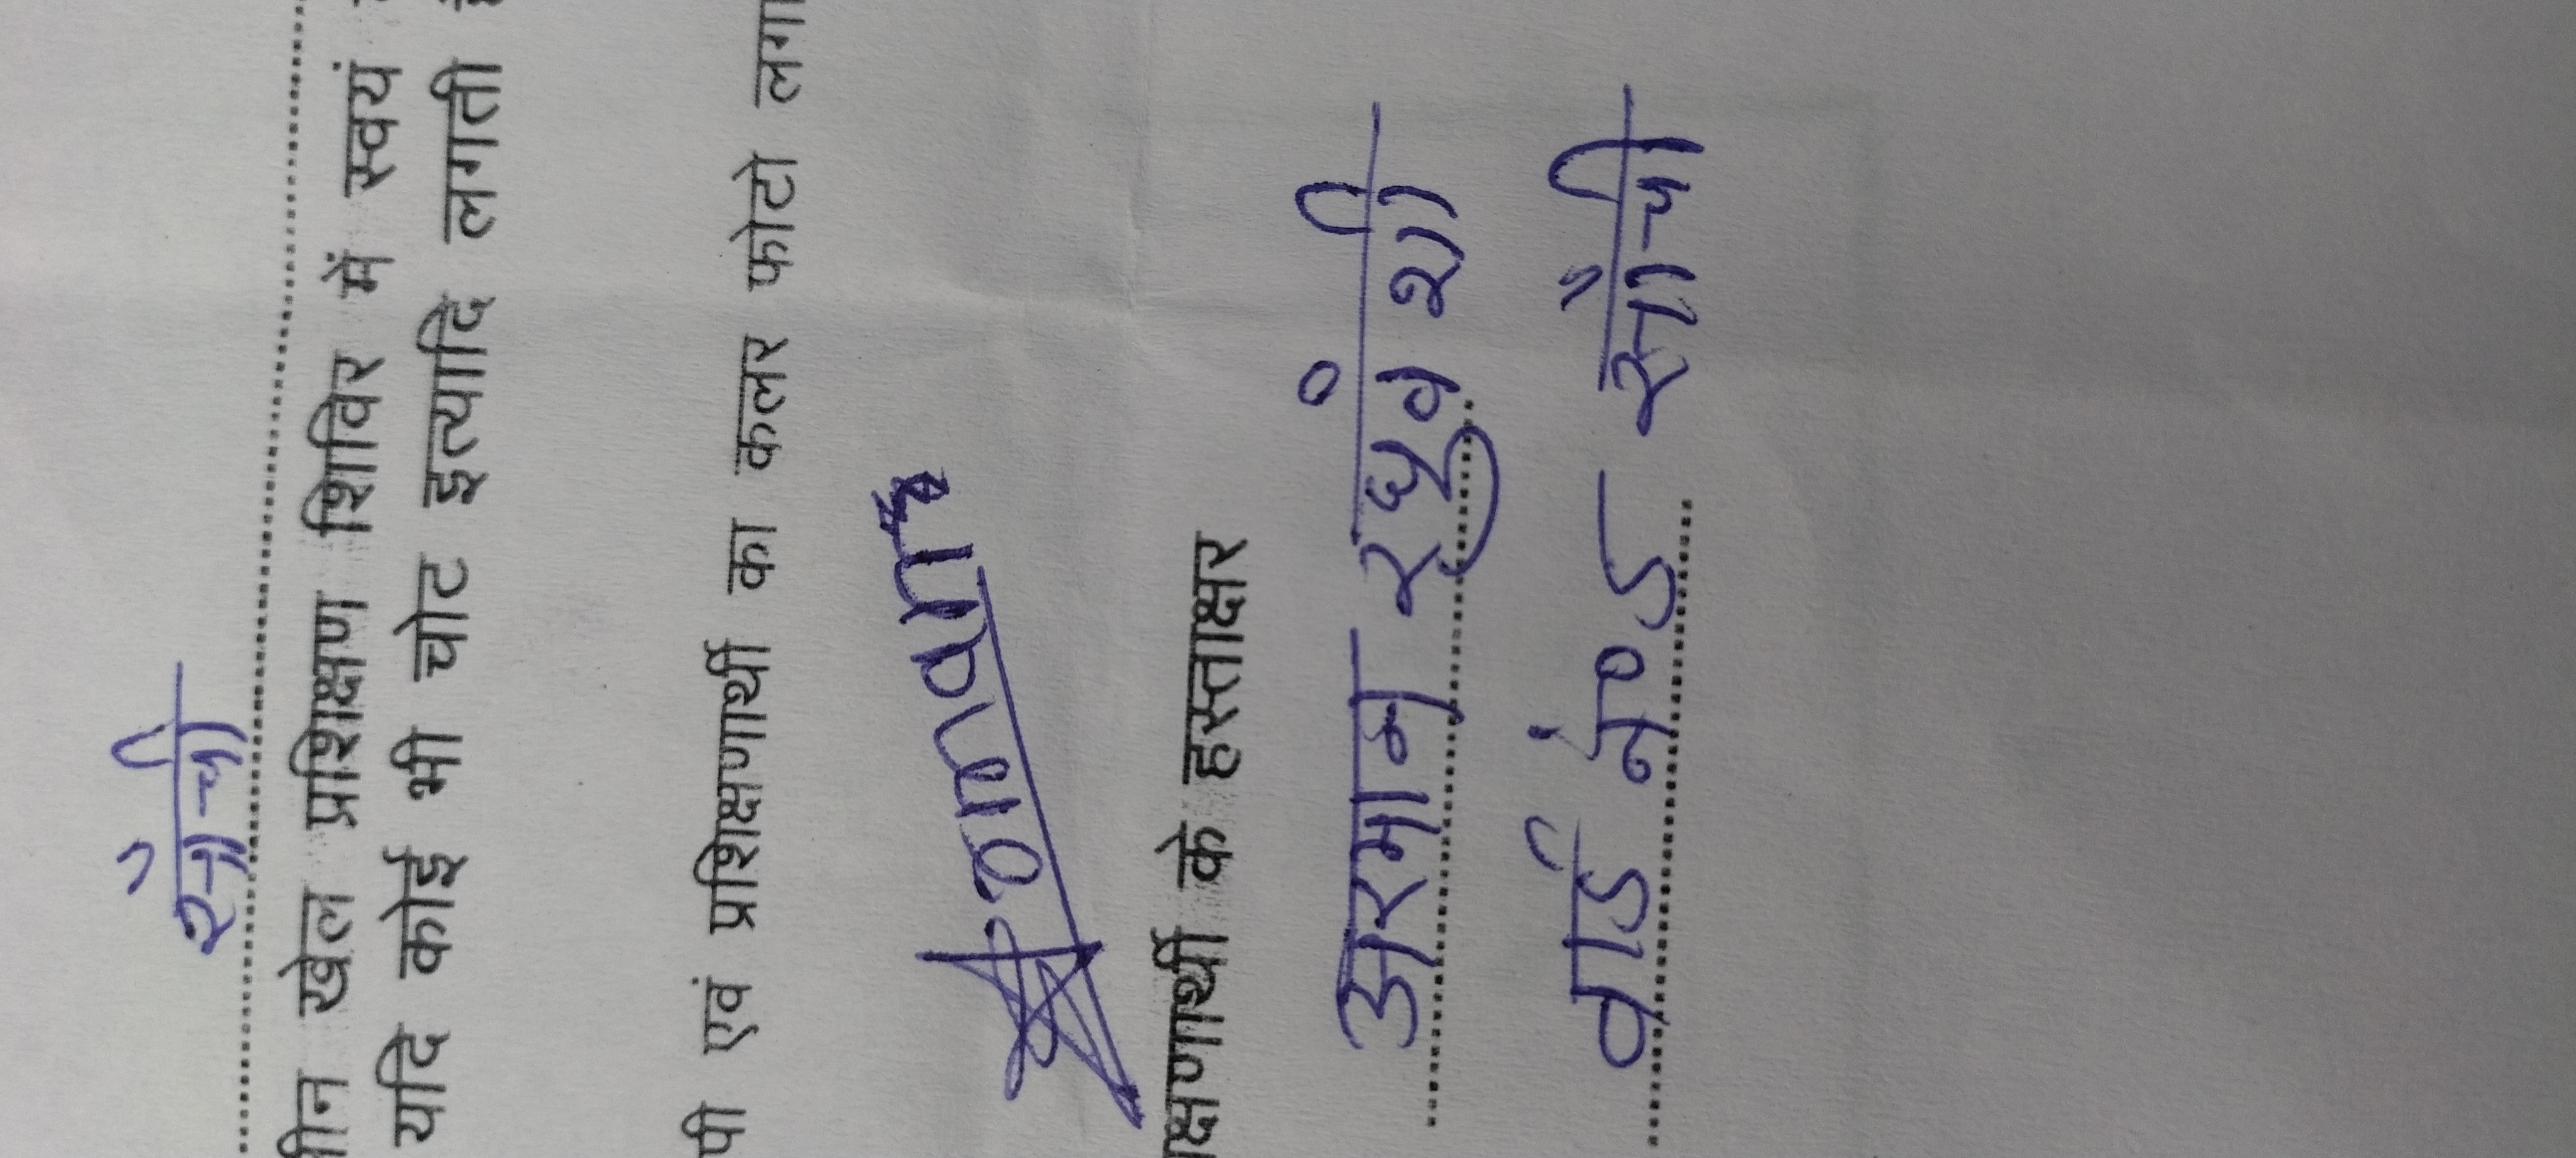 साँची
मीन खेल प्रशिक्षण शिविर में स्वयं
यदि कोई भी चोट इत्यादि लगती
पी एवं प्रशिक्षणार्थी का कलर फोटो लगा
क्षणार्थी के हस्ताक्षर
अरमान रघुवंशी
वार्ड नं० 5 साँची